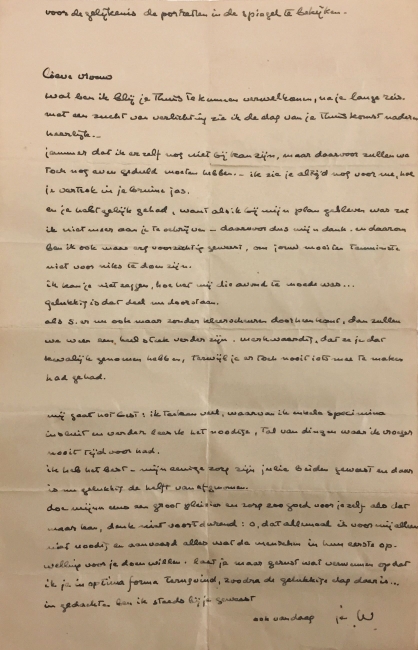 voor de gelijkenis de portretten in de spiegel te bekijken.
Lieve vrouw
wat ben ik blij je thuis te kunnen verwelkomen, na je lange reis.
met een zucht van verlichting zie ik de dag van je thuiskomst naderen
heerlijk.
jammer dat ik er zelf nog niet bij kan zijn, maar daarvoor zullen we
toch nog even geduld moeten hebben. - ik zie je altijd nog voor me, hoe
je vertrok in je bruine jas.
en je hebt gelijk gehad, want als ik bij mijn plan gebleven was zat
ik niet meer aan je te schrijven - daarvoor dus mijn dank. en daarom
ben ik ook maar erg voorzichtig geweest, om jouw moeite tenminste
niet voor niks te doen zijn.
ik kan je niet zeggen, hoe het mij die avond te moede was...
gelukkig is dat deel nu doorstaan.
als S. er nu ook maar zonder kleerscheuren doorheen komt, dan zullen
we weer een heel stuk verder zijn. merkwaardig, dat ze je dat
kwalijk genomen hebben, terwijl je er toch nooit iets mee te maken
had gehad.
mij gaat het best: ik teken veel, waarvan ik enkele specimina
insluit en verder leer ik het noodige, tal van dingen waar ik vroeger
nooit tijd voor had.
ik heb het best - mijn eenige zorg zijn jullie beiden geweest en daar
is nu gelukkig de helft van afgenomen.
doe mij nu eens een groot plezier en zorg zoo goed voor jezelf als dat
maar kan, denk niet voortdurend: o, dat allemaal is voor mij alleen
niet noodig en aanvaard alles wat de menschen in hun eerste op-
welling voor je doen willen. laat je maar gerust wat verwennen opdat
ik je in optima forma terugvind, zoodra de gelukkige dag daar is...
in gedachten ben ik steeds bij je geweest
ook vandaag je W.